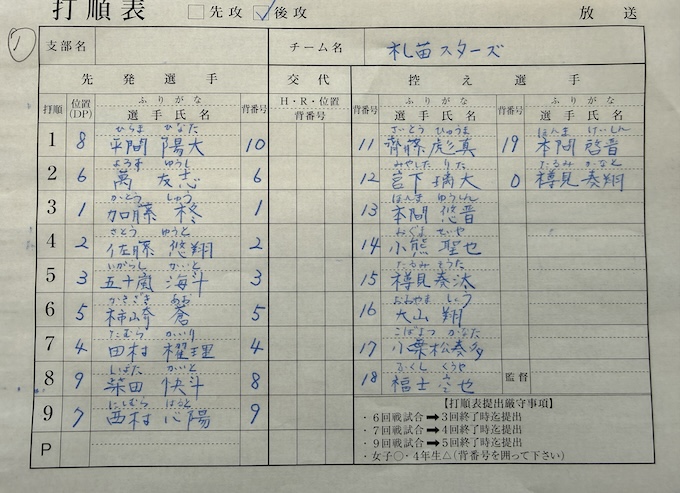 打順表 □先攻 ☑後攻 放送
①
支部名 チーム名 札苗スターズ
先発選手 交代 控え選手
打順 位置(DP) ふりがな 選手氏名 背番号 H・R・位置 背番号 ふりがな 選手氏名 背番号 ふりがな 選手氏名
ひらま ひなた さいとう ひゅうま ほんま けいしん
1 8 平間 陽大 10 11 齊藤 彪真 19 本間 啓晋
ようす ゆうし みやした りた たるみ かなと
2 6 萬 友志 6 12 宮下 璃大 0 樽見 奏翔
かとう しゅう ほんま ゆうしん
3 1 加藤 柊 1 13 本間 悠晋
さとう ゆうと おぐま せいや
4 2 佐藤 悠翔 2 14 小熊 聖也
いがらし かいと たるみ そうた
5 3 五十嵐 海斗 3 15 樽見 奏汰
かきざき あお おおやま しょう
6 5 柿﨑 蒼 5 16 大山 翔
たむら かいり こばまつ かなた
7 4 田村 櫂理 4 17 小栗松奏多
しばた かいと ふくし くうや
8 9 柴田 快斗 8 18 福士 空也 監督
にしむら はると
9 7 西村 心陽 9
P
【打順表提出厳守事項】
・6回戦試合➡3回終了時迄提出
・7回戦試合➡4回終了時迄提出
・9回戦試合➡5回終了時迄提出
・女子○・4年生△(背番号を囲って下さい)